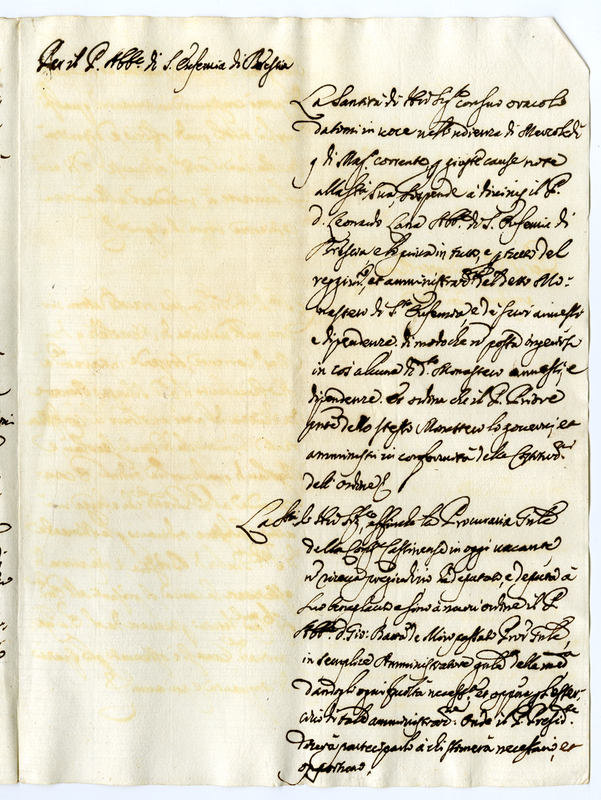 Per il P. Abb.e di S. Eufemia di Brescia
La Santità di N'ro Sig.re con suo oracolo
datomi in voce nell'udienza di Mercoldì
9 di Mag. corrente, p giuste cause note
alla S.tà Sua, sospende à divinis il P.
D. Leonardo Lana Abb.e di S. Eufemia di
Brescia, e lo priva in tutto, e p tutto del
reggim.to, et amministraz.ne del detto Mo-
nastero di S.ta Eufemia, e de suoi annessi
e dipendenze, di modo che n possa ingerirsi
in cos' alcuna di d.o Monastero annessi, e
dipendenze. Et ordina che il P. Priore
pnte dello stesso Monastero lo governi, et
amministri in conformità delle Constituz.ni
dell' ordine
La S.tà di N'ro Sig.re, essendo la Procuraria Gn'le
della Cong.ne Cassinense in oggi vacante
hà deputato, e deputa à
suo beneplacito e sino à nuovi ordini il P.
Abb.e D. Gio: Batt'a de Miro passato Proc.r Gn'le,
in semplice Amministratore gn'le della med.ma
dandogli ogni facoltà necess.a, et opp.na p l'eser-
cizio di tale amministraz.ne: Onde il P. Presid.te
doverà participarlo à chi stimerà necessario, et
opportuno.